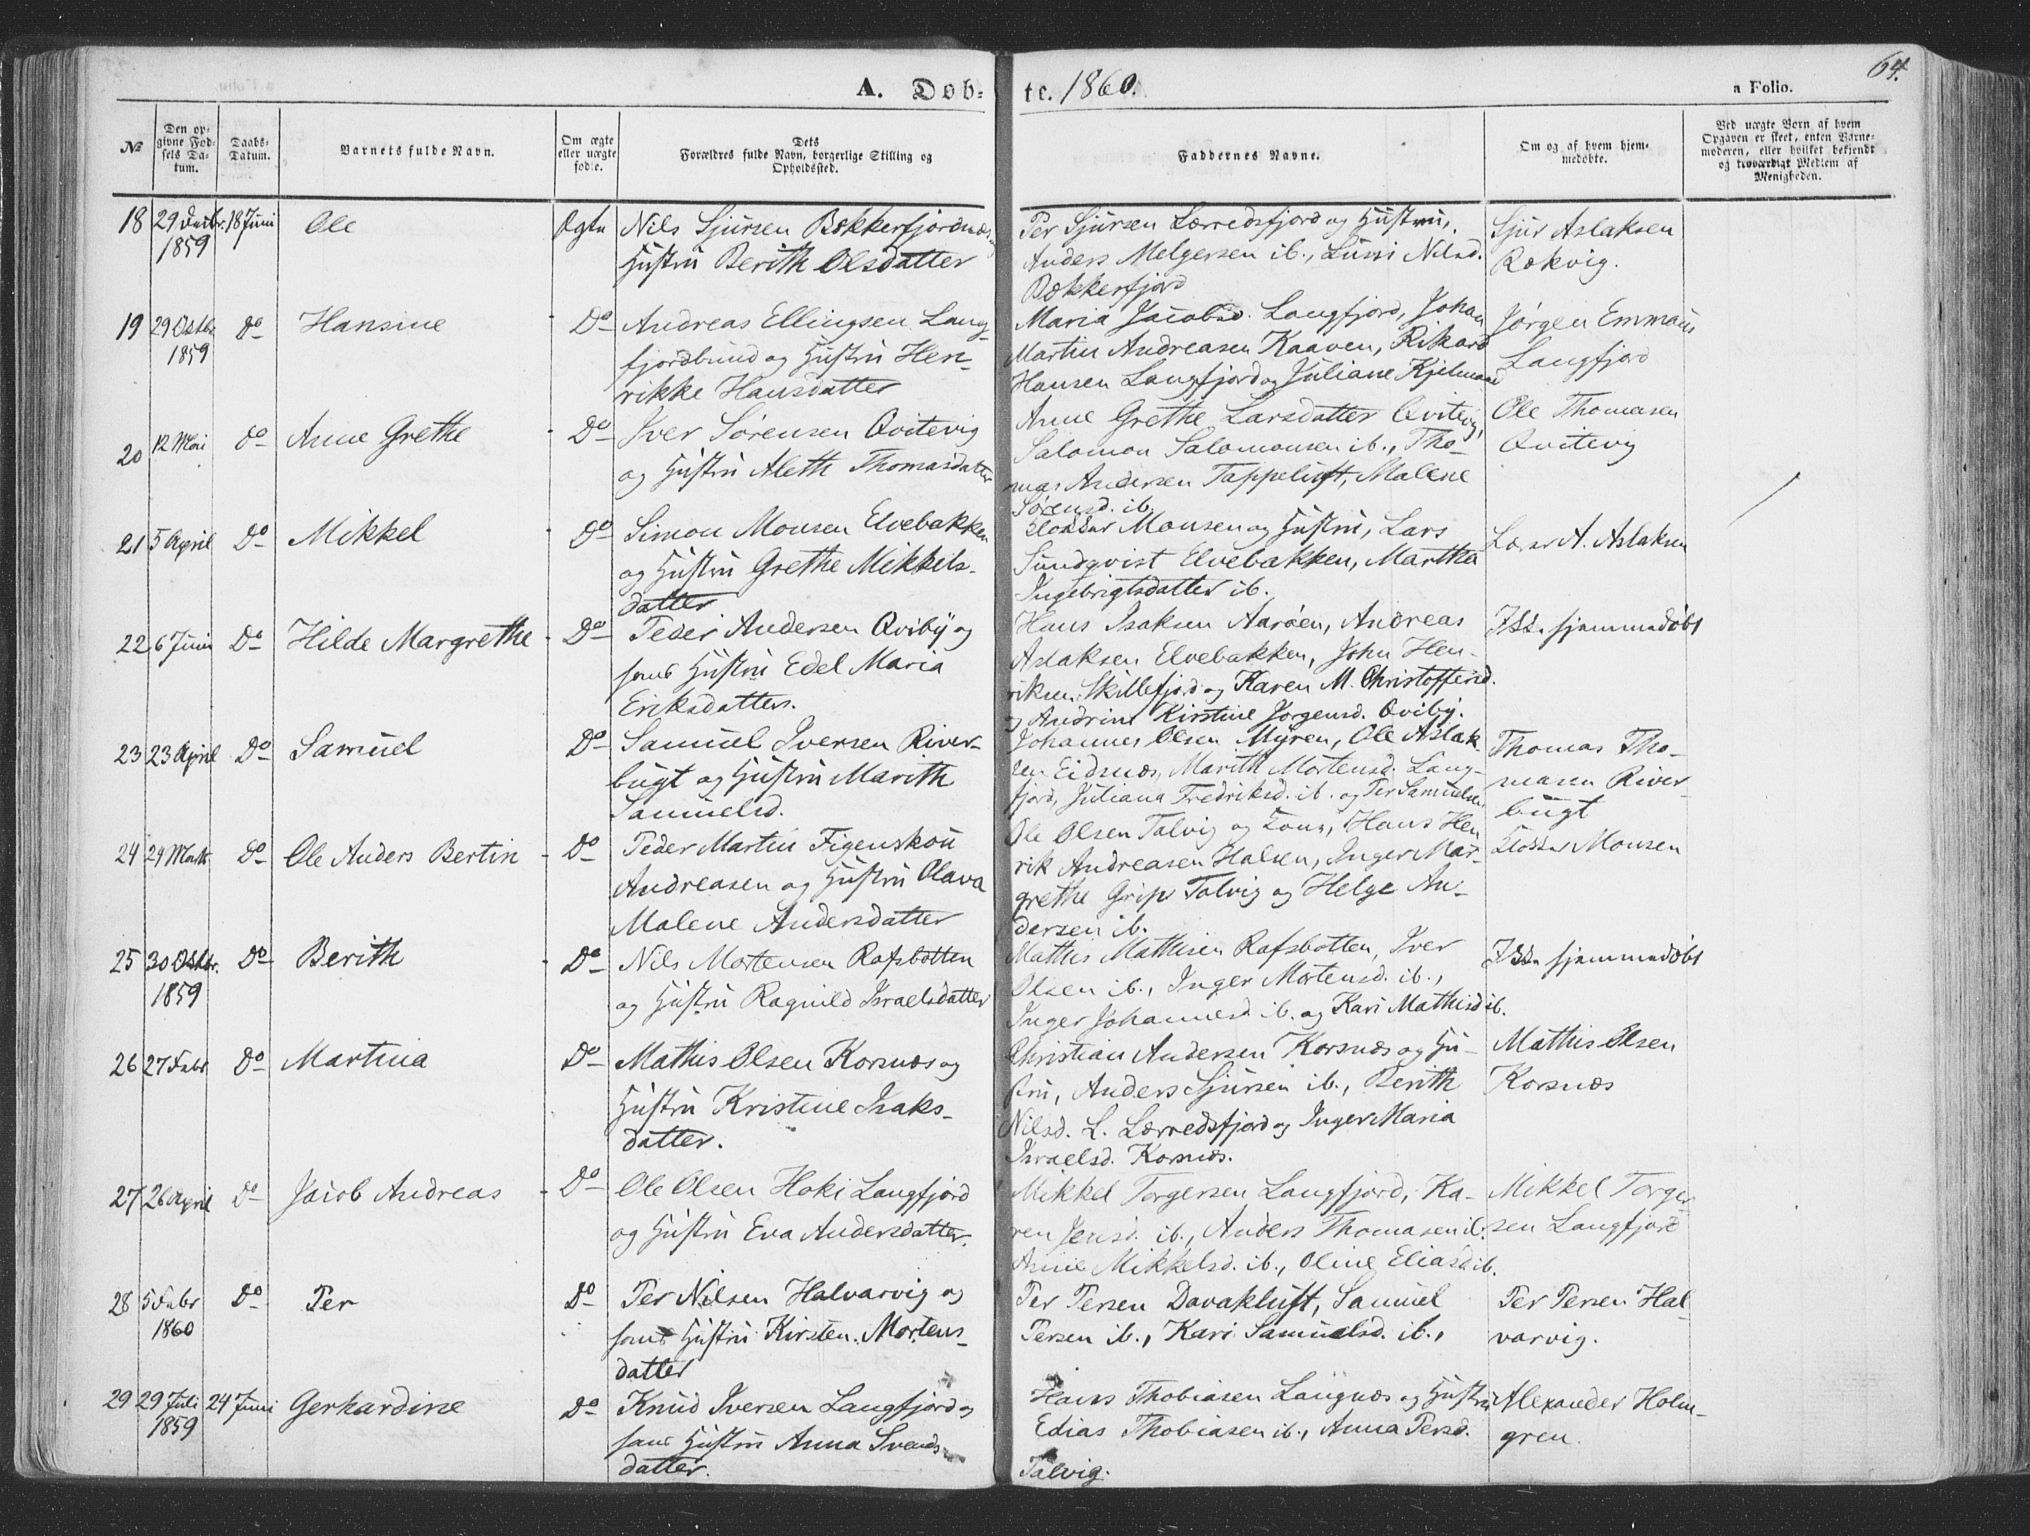 A. Døb-
te. 1860.
64.
a Folio.
№
Den op-
givne Fød-
sels Da-
tum.
Daabs-
Datum.
Barnets fulde Navn.
Om ægte
eller uægte
født.
Dets
Forældres fulde Navn, borgerlige Stilling og
Opholdssted.
Faddernes Navne.
Om og af hvem hjem-
medøbte.
Ved uægte Born af hvem
Opgaven er skeet, enten Barne-
moderen, eller hvilket bekjendt
og troværdigt Medlem af
Menigheden.
18 29 Decbr. 18 Juni Ole Ægte Nils Sjursen Bekkerfjordnæs og
1859 Hustru Berith Olsdatter
Per Sjursen Lerredsfjord og Hustru,
Anders Melgersen ib., Nilsd.
Bekkerfjord
Sjur Aslaksen
Rækvig.
19 29 Octbr. Do Hansine Do Andreas Ellingsen Lang-
1859 fjordbund og Hustru Hen-
rikke Hansdatter
Maria Jacobsd. Langfjord, Johan
Martin Andreasen Kaaven, Rikard
Hansen Langfjord og Juliane
Jørgen Emmaus
Langfjord
20 12 Mai do Anne Grethe Do Iver Sørensen Qvitevig
og Hustru Aleth Thomasdatter
Anne Grethe Larsdatter Qvitevig,
Salomon Salomonsen ib., Tho-
mas Andersen Tappeluft, Malene
Sørensd. ib.
Ole Thomasen
Qvitevig
21 5 April Do Mikkel Do Simon Monsen Elvebakken
og Hustru Grethe Mikkels-
datter
Klokker Monsen og Hustru, Lars
Sundqvist Elvebakken, Martha
Ingebrigtsdatter ib.
Lærer A. Aslaksen
22 6 Juni Do Hilde Margrethe Do Peder Andersen Qviby og
Hustru Edel Maria
Eriksdatter.
Hans Isaksen Aarøen, Andreas
Aslaksen Elvebakken, John Hen-
riksen Skillefjord og Karen M. Christoffersd.
og Andrine Kirstine Jørgensd. Qviby.
Ikke hjemmedøbt
23 23 April Do Samuel Do Samuel Iversen River-
bugt og Hustru Marith
Samuelsd.
Johannes Olsen Myren, Ole Aslak-
sen Eidsnæs, Marith Mortensd. Lang-
fjord, Juliana Fredriksd. ib. og Per Samuelsen
Thomas Tho-
masen River-
bugt
24 29 Marts Do Ole Anders Bertin Do Peder Martin Figenskou
Andreasen og Hustru Olava
Malene Andersdatter
Ole Olsen Talvig og Kone, Hans Hen
rik Andreasen Halsen, Inger Mar-
grethe Grip Talvig og Helge An-
dersen ib.
Klokker Monsen
25 30 Octbr. Do Berith Do Nils Mortensen Rafsbotten
1859 og Hustru Ragnild Israelsdatter
Mathis Mathisen Rafsbotten, Iver
Olsen ib., Inger Mortensd. ib.,
Inger Johannesd. ib. og Kari Mathisd ib.
Ikke hjemmedøbt
26 27 Febr Do Martina Do Mathis Olsen Korsnæs og
Hustru Kristine Isaks-
datter.
Christian Andersen Korsnæs og Hu-
stru, Anders Sjursen ib., Berith
Nilsd. L. Lerredsfjord og Inger Maria
Israelsd. Korsnæs.
Mathis Olsen
Korsnæs
27 26 April Do Jacob Andreas Do Ole Olsen Hoki Langfjord
og Hustru Eva Andersdatter.
Mikkel Torgersen Langfjord, Ka-
ren Jensd. ib., Anders Thomasen ib.
Anne Mikkelsd. ib., Oline Eliasd ib.
Mikkel Torger
sen Langfjord
28 5 Febr Do Per Do Per Nilsen Halvarvig og
1860 Hustru Kirsten Mortens-
datter
Per Persen Davakluft, Samuel
Persen ib., Kari Samuelsd. ib.,
Per Persen Hal-
varvig.
29 29 Juli 24 Juni Gerhardine Do Knud Iversen Langfjord og
1859 Hustru Anna Svends-
datter.
Hans Thobiasen Langnæs og Hustru
Edias Thobiasen ib., Anna Persd.
Talvig.
Alexander Holm-
gren.